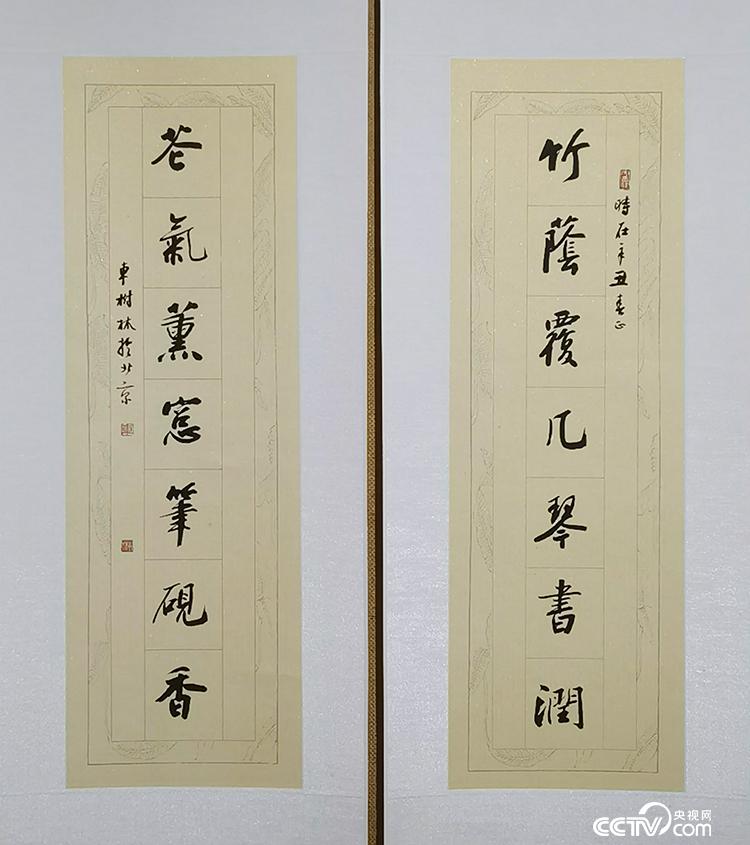 時在辛丑春正
竹蔭覆几琴書潤
花氣薰窓筆硯香
車樹林於北京
央视网
CCTV.com